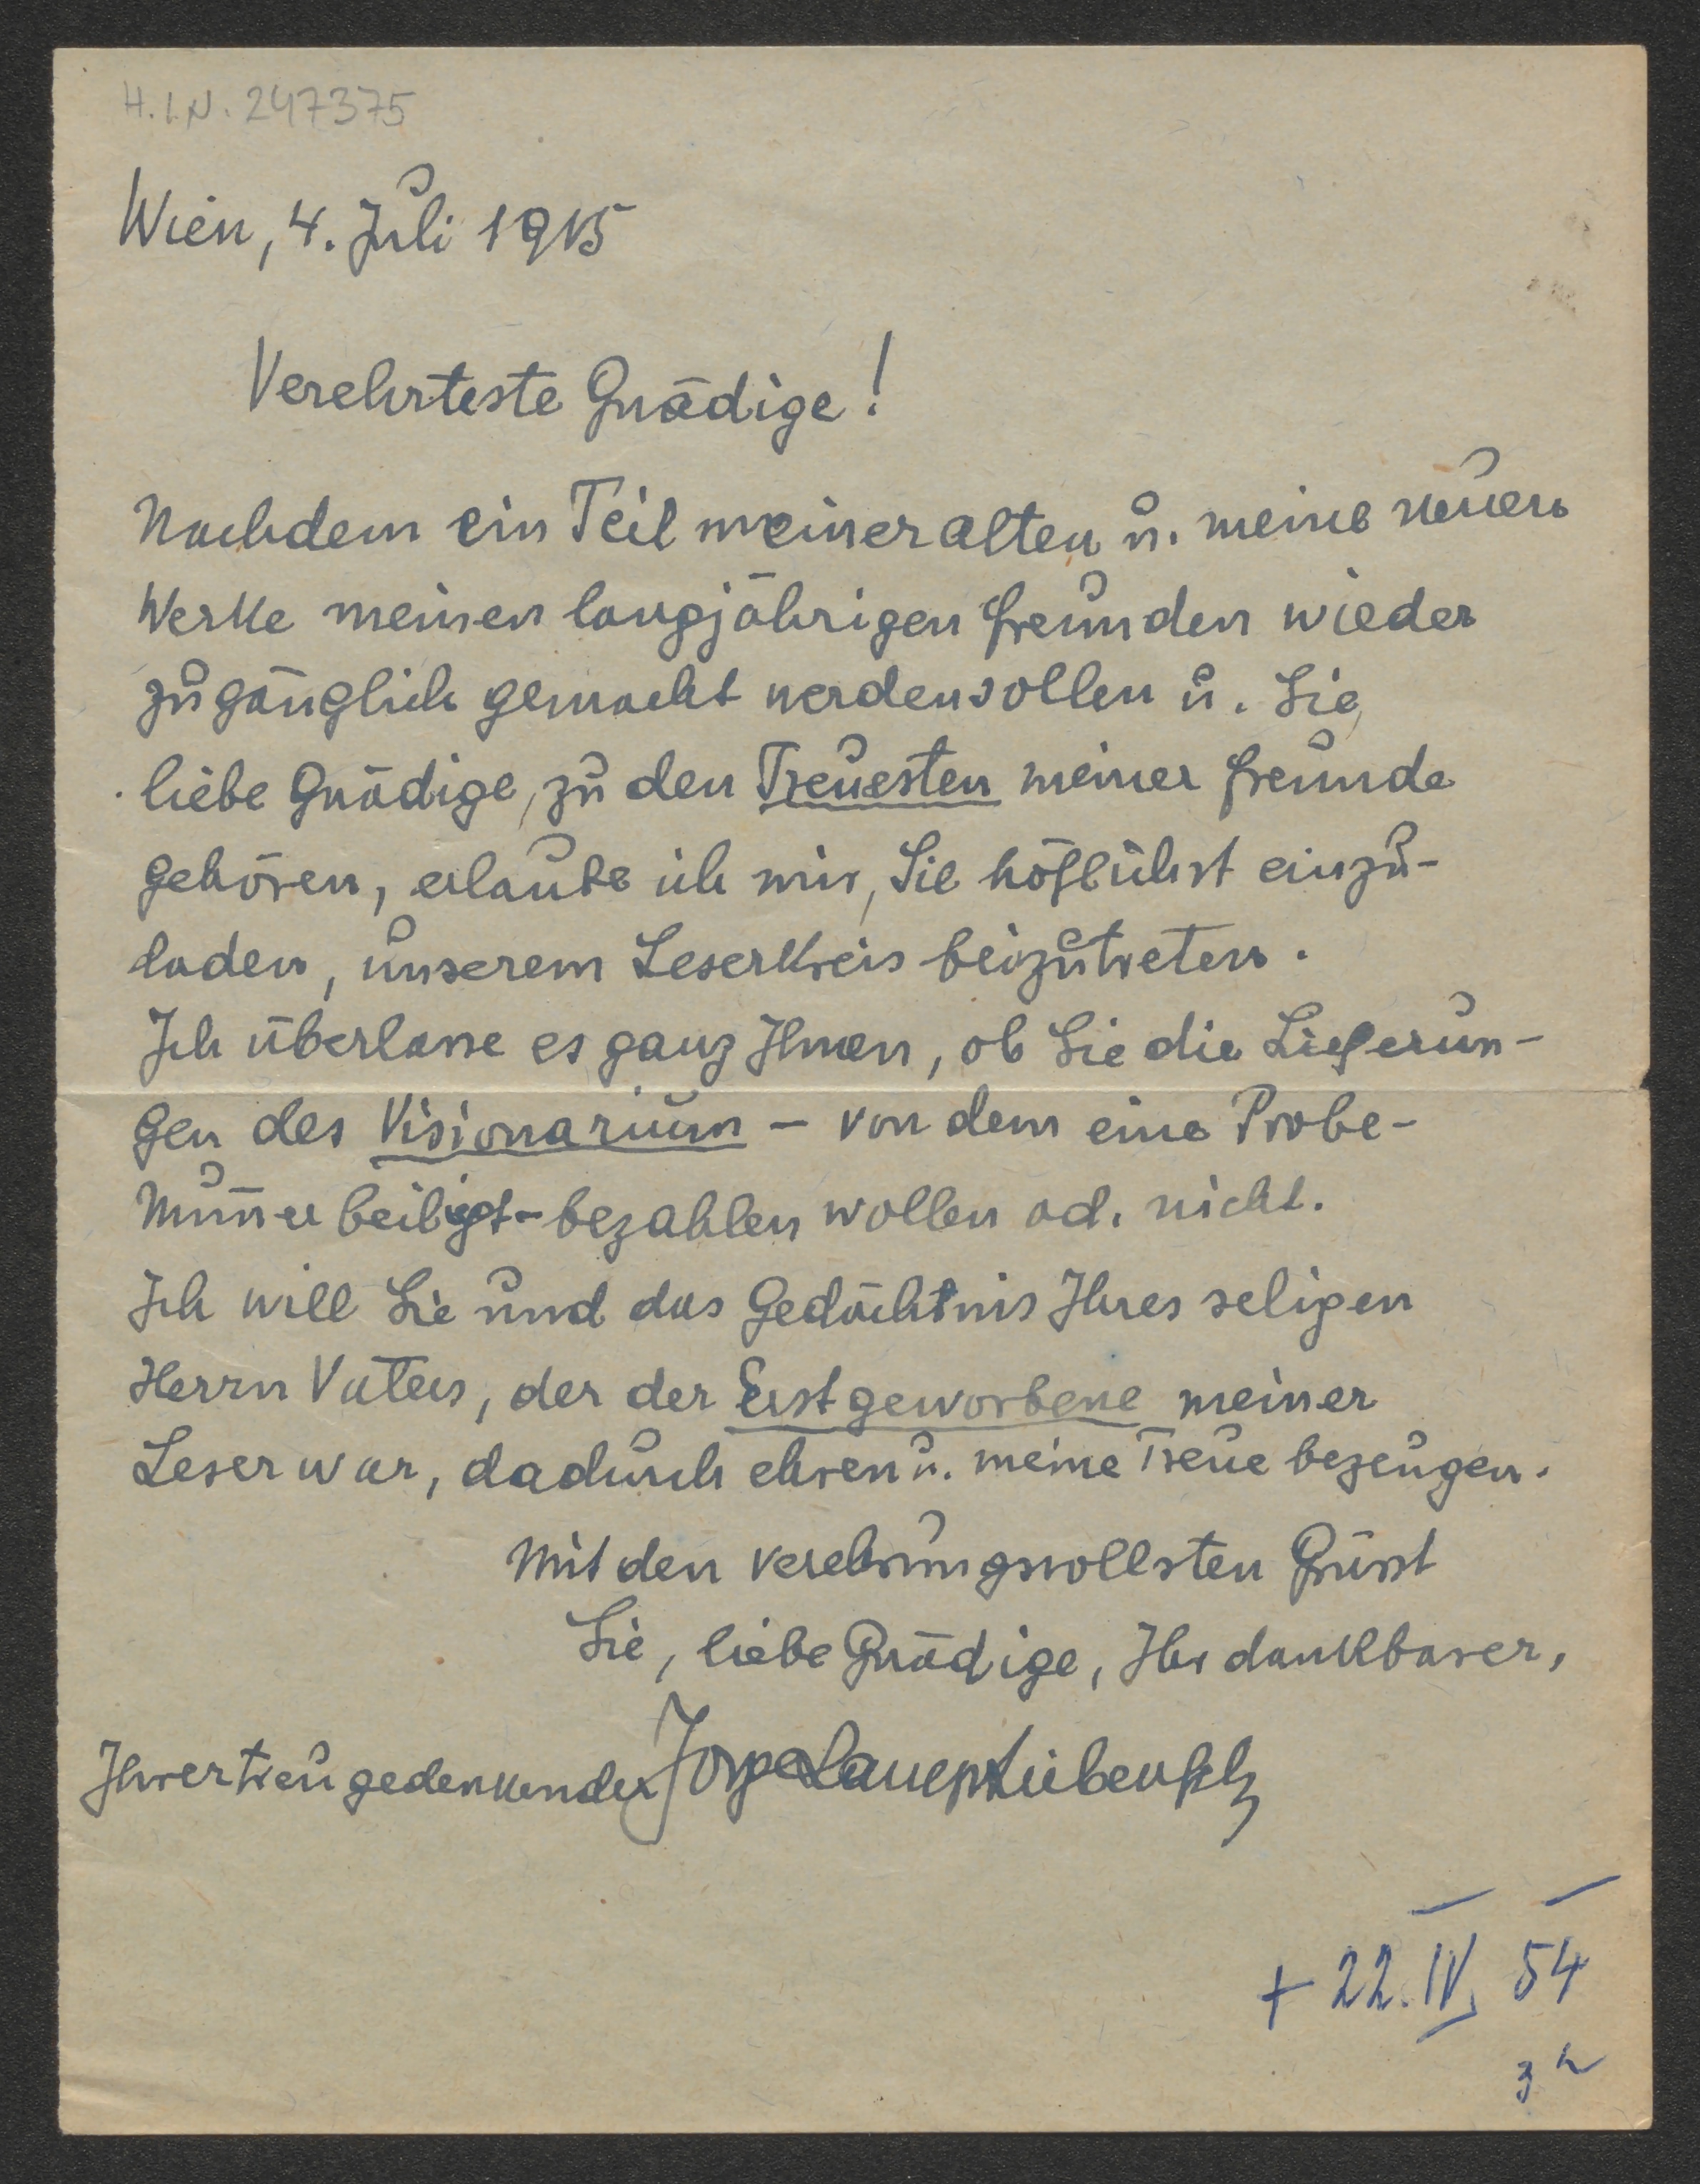 H.I.N. 247375
Wien, 4. Juli 1915
Verehrteste Gnädige!
Nachdem ein Teil meiner alten u. meine neuen
Werke meinen langjährigen Freunden wieder
zugänglich gemacht werden sollen u. Sie,
liebe Gnädige, zu den Treuesten meiner Freunde
gehören, erlaube ich mir, Sie höflichst einzu-
laden, unserem Leserkreis beizutreten.
Ich überlasse es ganz Ihnen, ob Sie die Lieferun-
gen des Visionarium – von dem eine Probe-
Num̄er beiliegt – bezahlen wollen od. nicht.
Ich will Sie und das Gedächtnis Ihres seligen
Herrn Vaters, der der Erstgeworbene meiner
Leser war, dadurch ehren u. meine Treue bezeugen.
Mit den verehrungsvollsten Grüsst
Sie, liebe Gnädige, Ihr dankbarer,
Ihrer treu gedenkender Jörg Lanz v. Liebenfels
+ 22. IV. 54
3 h